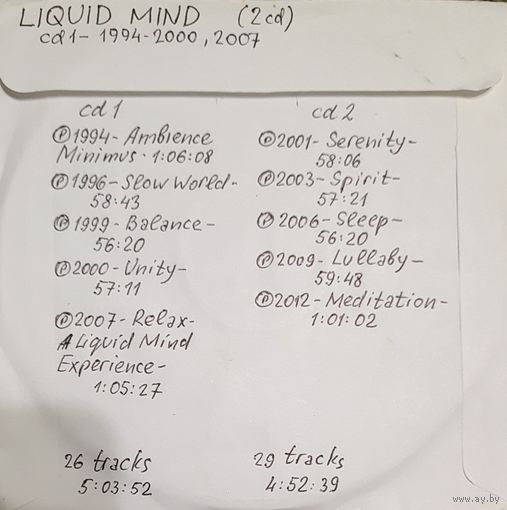 LIQUID MIND (2cd)
cd1- 1994-2000, 2007
cd 1
Ⓟ1994- Ambience
Minimus - 1:06:08
Ⓟ1996- Slow World-
58:43
Ⓟ1999- Balance-
56:20
Ⓟ2000- Unity-
57:11
Ⓟ2007- Relax-
A Liquid Mind
Experience-
1:05:27
26 tracks
5:03:52
cd 2
Ⓟ2001- Serenity-
58:06
Ⓟ2003- Spirit-
57:21
Ⓟ2006- Sleep-
56:20
Ⓟ2009- Lullaby-
59:48
Ⓟ2012- Meditation-
1:01:02
29 tracks
4:52:39
www.ay.by